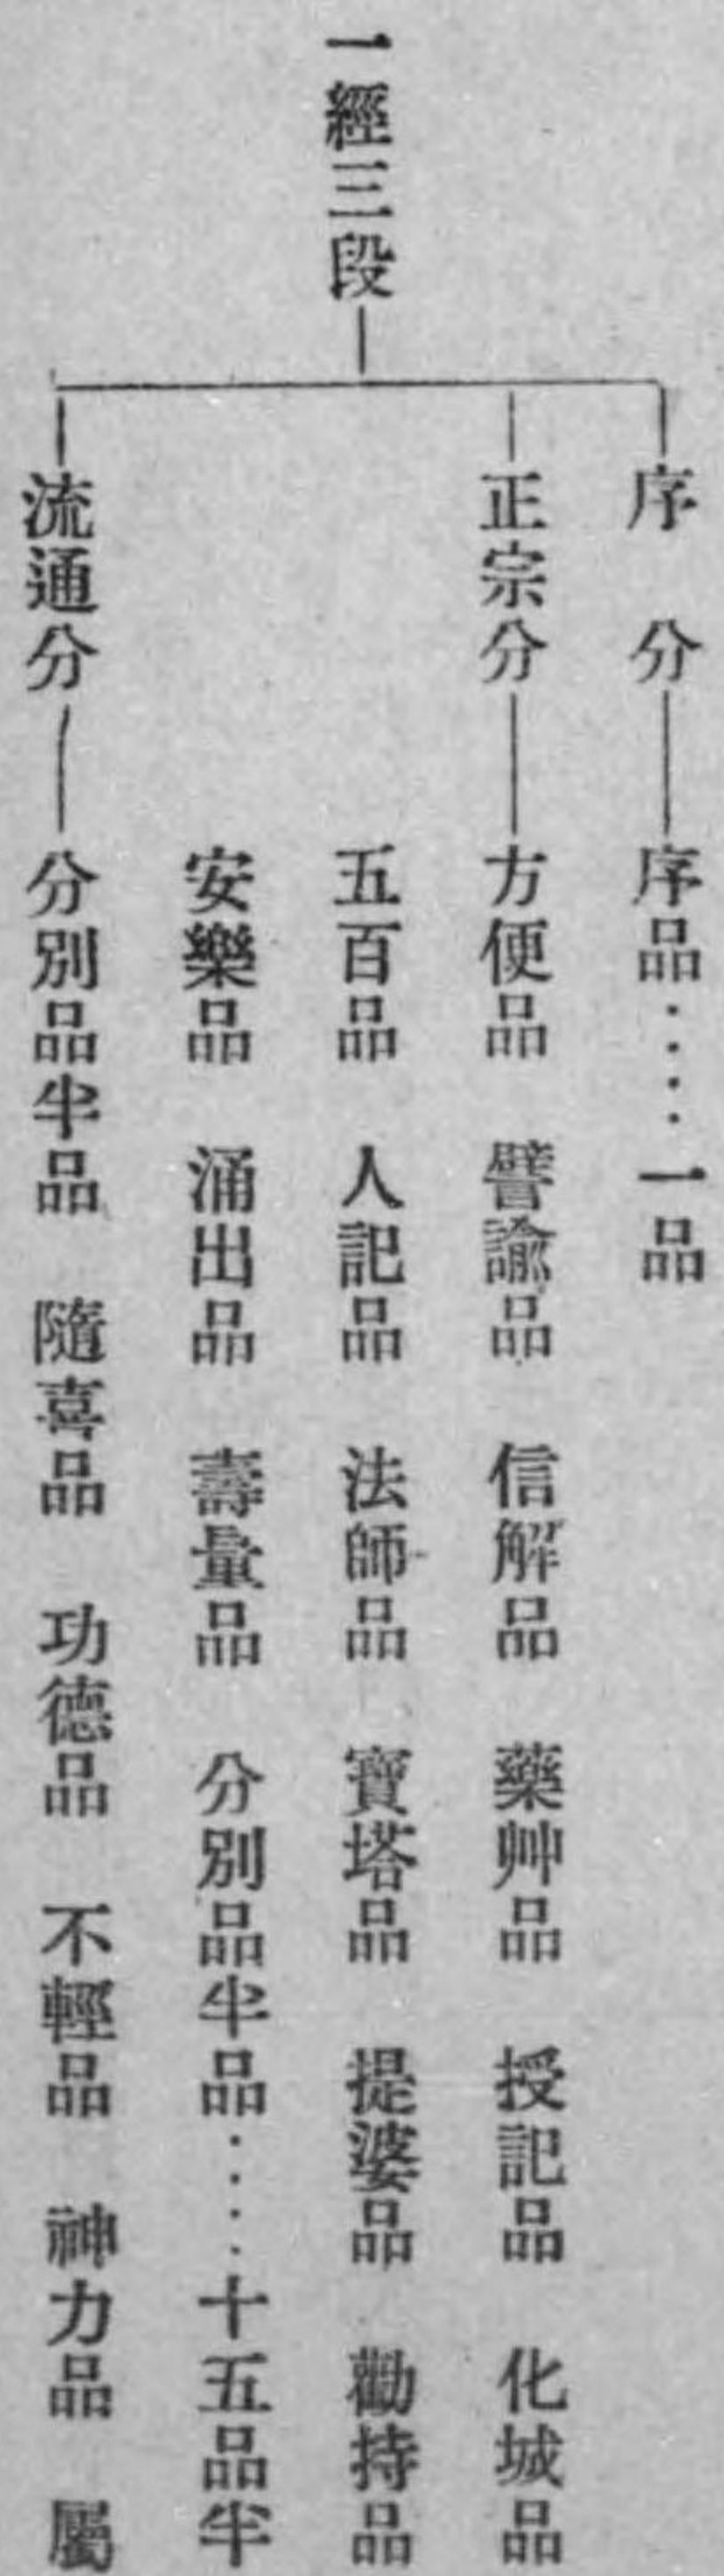 一經三段
序分 序品‥‥一品
正宗分 方便品 譬諭品 信解品 藥艸品 授記品 化城品
五百品 人記品 法師品 寶塔品 提婆品 勸持品
安樂品 涌出品 壽量品 分別品半品‥‥十五品半
流通分 分別品半品 隨喜品 功德品 不輕品 神力品 屬